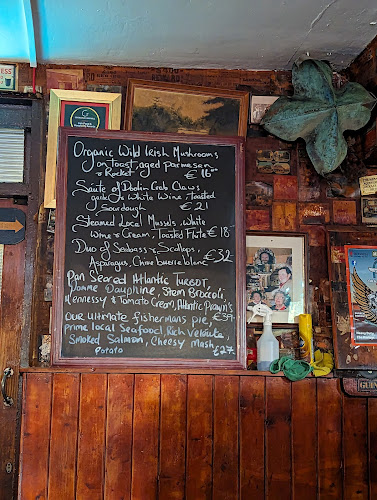 Organic Wild Irish Mushrooms
on Toast, aged parmesan
& Rocket € 16.00
Saute of Doolin Crab Claws
garlic & White Wine, Toasted
Sourdough €21
Steamed Local Mussels, White
Wine & Cream, Toasted Flute € 18
Duo of Seabass & Scallops,
Asparagus, Chive buerre blanc €32
Pan Seared Atlantic Turbot,
Pomme Dauphine, Stem Broccoli,
Hennessy & Tomato Cream, Atlantic Prawns
€39
Our ultimate fishermans pie,
prime local Seafood, Rich Veloute,
Smoked Salmon, Cheesy Mash
Potato €27.